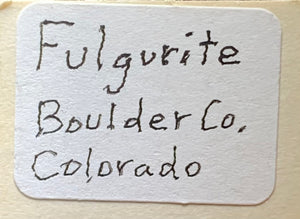 Fulgurite
Boulder Co.
Colorado